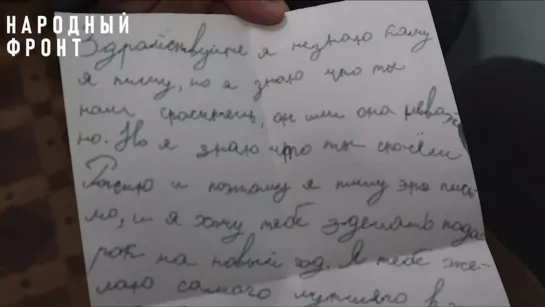 НАРОДНЫЙ
ФРОНТ
Здравствуйте я незнаю каму
я пишу, но я знаю что ты
наш спаситель, он или она неваж
но. Но я знаю что ты
Росию и поэтому я пишу это пись-
мо, и я хочу тебе зделать пода
рок на новый год. Я тебе же-
лаю самого лутшего в